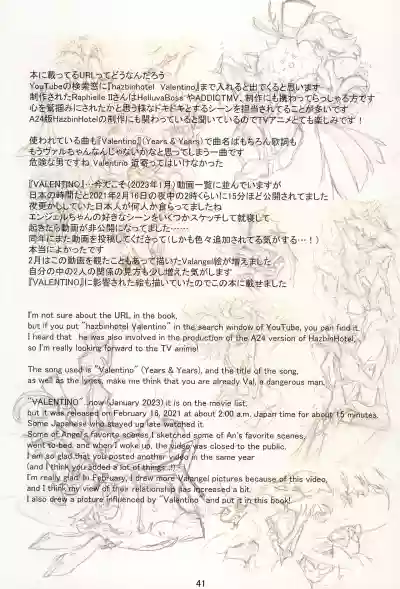 本に載ってるURLってどうなんだろう
YouTubeの検索窓に『hazbinhotel Valentino』まで入れると出てくると思います
制作されたRaphielle IIさんはHelluvaBossやADDICTMV、制作にも携わってらっしゃる方です
心を鷲掴みにされたかと思う様なドキドキとするシーンを担当されてることが多いです
A24版HazbinHotelの制作にも関わっていると聞いているのでTVアニメとても楽しみです！
使われている曲も『Valentino』(Years & Years)で曲名ばもちろん歌詞も
もうヴァルちゃんなんじゃないかなと思ってしまう一曲です
危険な男ですね Valentino 近寄ってはいけなかった
『VALENTINO』…今えこそ(2023年1月)動画一覧に並んでいますが
日本の時間だと2021年2月16日の夜中の2時くらいに15分ほど公開されてました
夜更かししていた日本人が何人か食らってましたね
エンジェルちゃんの好きなシーンをいくつかスケッチして就寝して
起きたら動画が非公開になってました……
同年にまた動画を投稿してくださって(しかも色々追加されてる気がする…！)
本当によかったです
2月はこの動画を観たこともあって描いたValangel絵が増えました
自分の中の2人の関係の見方も少し増えた気がします
『VALENTINO』に影響された絵も描いていたのでこの本に載せました
I'm not sure about the URL in the book,
but if you put "hazbinhotel Valentino" in the search window of YouTube, you can find it.
I heard that he was also involved in the production of the A24 version of HazbinHotel,
so I'm really looking forward to the TV anime!
The song used is "Valentino" (Years & Years), and the title of the song,
as well as the lyrics, make me think that you are already Val, a dangerous man.
"VALENTINO"...now (January 2023) it is on the movie list,
but it was released on February 16, 2021 at about 2:00 a.m. Japan time for about 15 minutes.
Some Japanese who stayed up late watched it.
Some of Angel's favorite scenes I sketched some of An's favorite scenes,
went to bed, and when I woke up, the video was closed to the public.
I am so glad that you posted another video in the same year
(and I think you added a lot of things...!)
I'm really glad In February, I drew more Valangel pictures because of this video,
and I think my view of their relationship has increased a bit.
I also drew a picture influenced by "Valentino" and put it in this book!
41